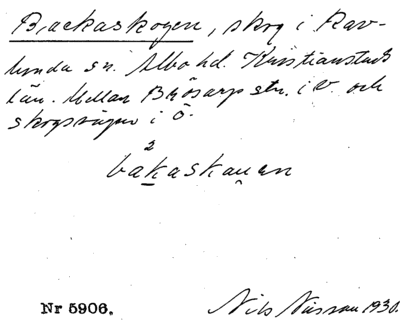 Backaskogen, skog i Rav-
lunda sn. Albo hd. Kristianstads
län. Mellan Brösarps stn. i V. och
skogsvägen i Ö.
2
bakaskauen
Nr 5906. Nils Nilsson 1930.